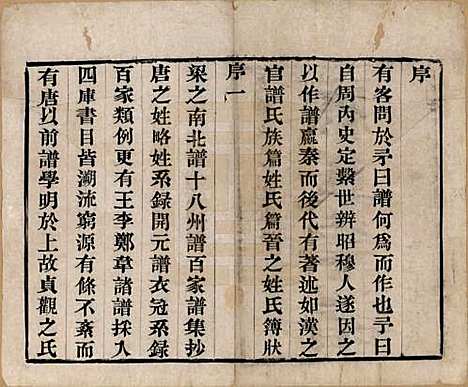 序
有客問於予曰譜何爲而作也予曰
自周內史定繫世辨昭穆人遂因之
以作譜嬴秦而後代有著述如漢之
官譜氏族篇姓氏篇晉之姓氏簿狀
序一
梁之南北譜十八州譜百家譜集抄
唐之姓略姓系錄開元譜衣冠系錄
百家類例更有王李鄭韋諸譜採入
四庫書目皆溯流窮源有條不紊而
有唐以前譜學明於上故貞觀之氏